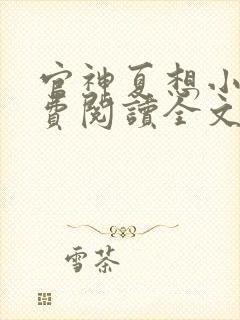 官神夏想小
費閱讀全文
雪茶